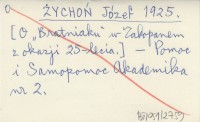 ŻYCHOŃ Józef 1925.
[O „Bratniaku" w Zakopanem
z okazji 25-lecia.] — Pomoc
i Samopomoc Akademika
nr 2.